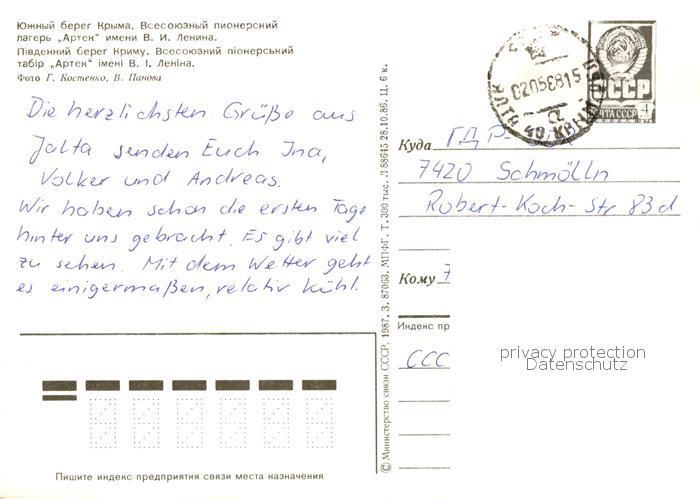 Южный берег Крыма. Всесоюзный пионерский
лагерь „Артек" имени В. И. Ленина.
Південний берег Криму. Всесоюзний піонерський
табір „Артек" імені В. І. Леніна.
Фото Г. Костенко, В. Панова
Die herzlichsten Grüße aus
Jalta senden Euch Ina,
Volker und Andreas.
Wir haben schon die ersten Tage
hinter uns gebracht. Es gibt viel
zu sehen. Mit dem Wetter geht
es einigermaßen, relativ kühl.
Пишите индекс предприятия связи места назначения
© Министерство связи СССР. 1987. З. 87063. МПФГ. Т. 300 тыс. Л 88645 28.10.86. Ц. 6 к.
СССР
ПОЧТА СССР 4
02058815
Куда ГДР-
7420 Schmölln
Robert-Koch-Str 83d
Кому
Индекс пр
ССС
privacy protection
Datenschutz